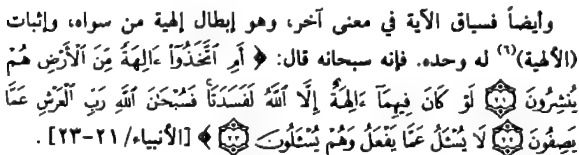 وأيضاً فسياق الآية في معنى آخر، وهو إبطال إلهية من سواه، وإثبات
(الألهية)(٦) له وحده. فإنه سبحانه قال: ﴿ أَمِ ٱتَّخَذُوٓاْ ءَالِهَةً مِّنَ ٱلْأَرْضِ هُمْ
يُنشِرُونَ ۝٢١ لَوْ كَانَ فِيهِمَآ ءَالِهَةٌ إِلَّا ٱللَّهُ لَفَسَدَتَا فَسُبْحَٰنَ ٱللَّهِ رَبِّ ٱلْعَرْشِ عَمَّا
يَصِفُونَ ۝٢٢ لَا يُسْـَٔلُ عَمَّا يَفْعَلُ وَهُمْ يُسْـَٔلُونَ ۝٢٣ ﴾ [الأنبياء/ ٢١-٢٣] .